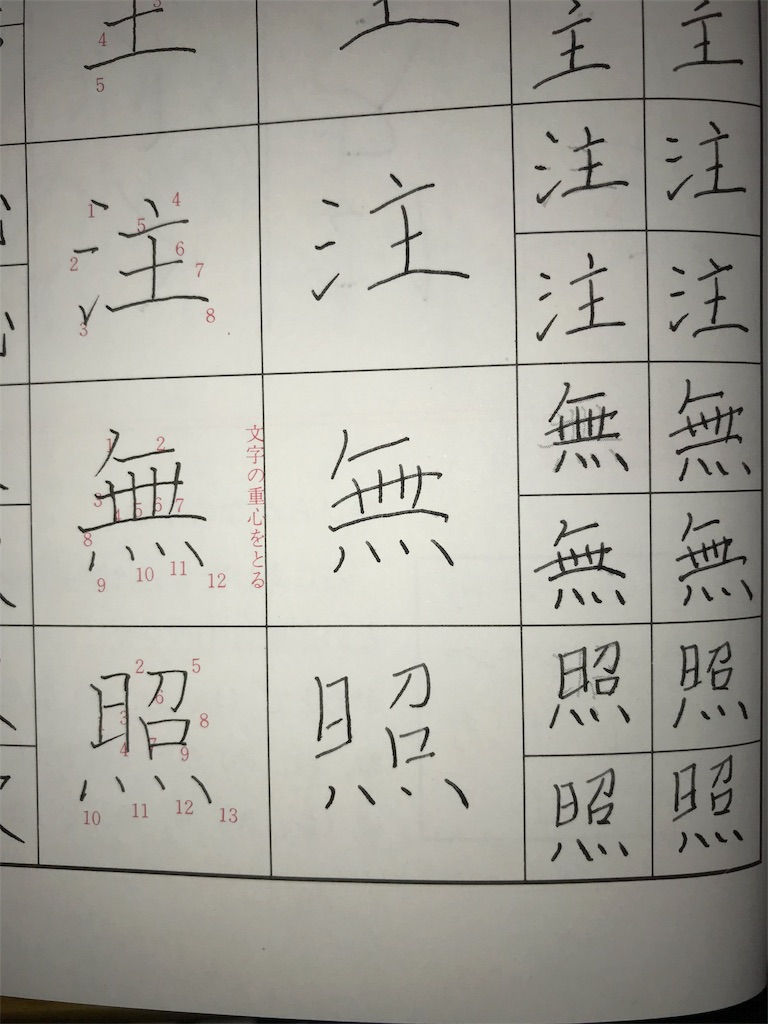 3
4
5
主 主 主 主
注 注 注 注
1 2 3 4 5 6 7 8
注 注
無 無 無 無
1 2 3 4 5 6 7 8 9 10 11 12
文字の重心をとる
無 無
照 照 照 照
2 3 4 5 6 7 8 9 10 11 12 13
照 照